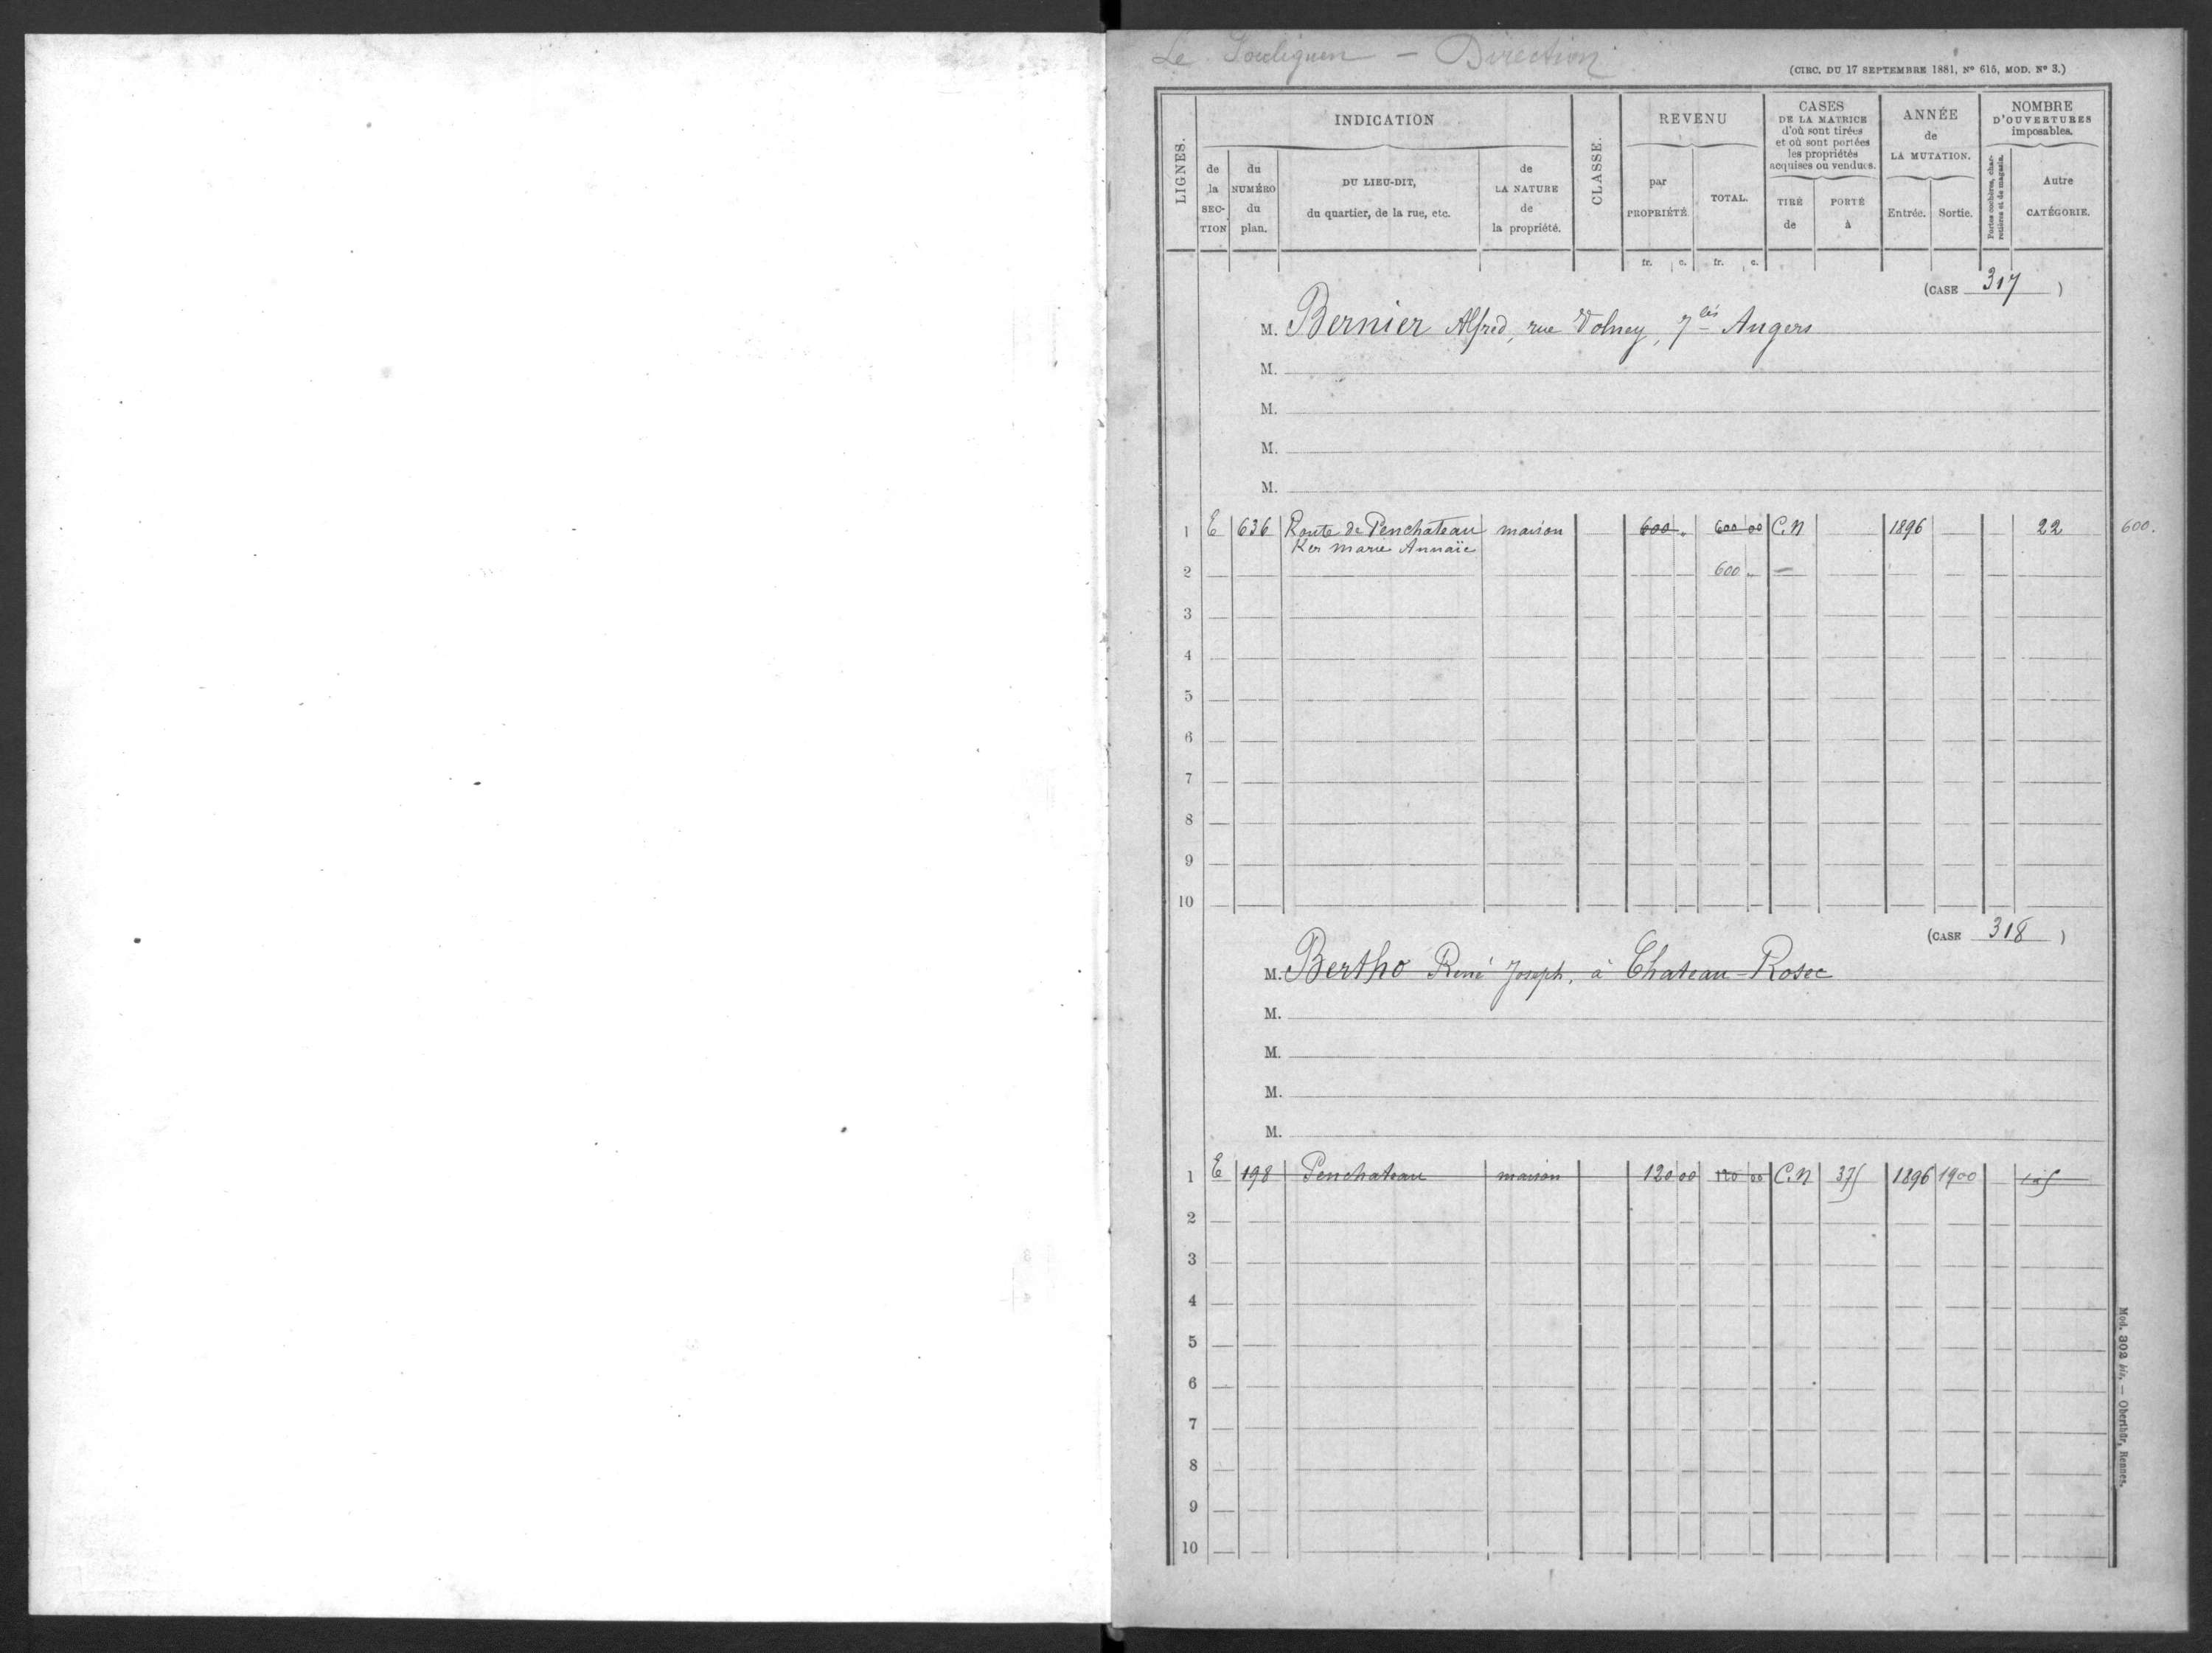 Le Pouliguen - Direction
(CIRC. DU 17 SEPTEMBRE 1881, Nº 615, MOD. Nº 3.)
LIGNES.
INDICATION
de la SEC-TION
du NUMÉRO du plan.
DU LIEU-DIT, du quartier, de la rue, etc.
de LA NATURE de la propriété.
CLASSE.
REVENU
par PROPRIÉTÉ.
TOTAL.
CASES DE LA MATRICE d'où sont tirées et où sont portées les propriétés acquises ou vendues.
TIRÉ de
PORTÉ à
ANNÉE de LA MUTATION.
Entrée.
Sortie.
NOMBRE D'OUVERTURES imposables.
Portes cochères, charretières et de magasin.
Autre CATÉGORIE.
fr. c. fr. c.
(CASE 317)
M. Bernier Alfred, rue Volney, 7 bis Angers
M.
M.
M.
M.
1 E 636 Route de Penchateau maison 600 „ 600 00 C.N 1896 22 600.
Ker Marie Annaïc
2 600 „
3
4
5
6
7
8
9
10
(CASE 318)
M. Bertho René Joseph, à Chateau-Rosec
M.
M.
M.
M.
1 E 198 Penchateau maison 120 00 120 00 C.N 375 1896 1900
2
3
4
5
6
7
8
9
10
Mod. 302 bis. — Oberthür, Rennes.